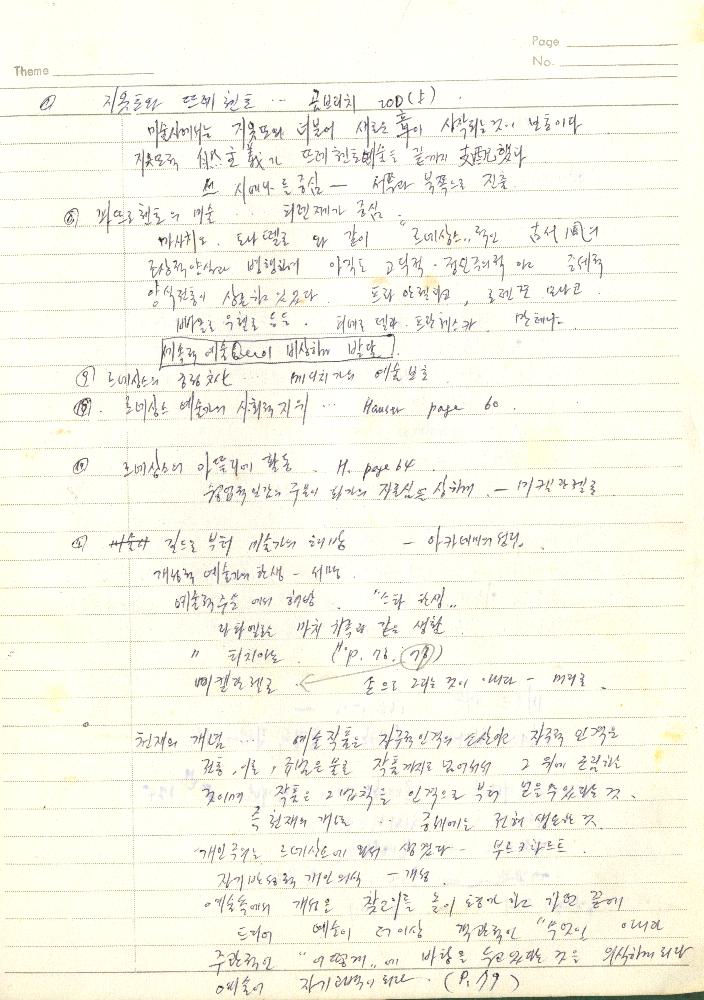 Page
Theme
No.
지옷토와 뜨레첸토 … 곰브리치 200(上)
미술사에서는 지옷또와 더불어 새로운 章이 시작되는 것이 보통이다
지옷또적 自然主義가 뜨레첸토예술을 끝까지 支配했다
시에나를 중심 — 서쪽과 북쪽으로 진출
⑧ 꽈뜨로첸토의 미술 … 피렌체가 중심
마사치오. 도나텔로와 같이 "르네상스"적인
조상적양식과 병행하여 아직도 고딕적·정신주의적 중세적
양식전통이 상존하고 있었다. 프라 안젤리코, 로렌쪼 모나코
빠올로 우첼로 등등. 피에로 델라 프란체스카. 만테냐
세속적 예술이 비상하게 발달.
⑨ 르네상스의 중핵 … 메디치가의 예술보호
⑩. 르네상스 예술가의 사회적지위 … Hauser page 60.
⑪ 르네상스의 아뜰리에 활동. H. page 64
수업적인간의 주문이 화가의 자존심을 상하게. — 미켈란젤로
길드로부터 미술가의 해방 — 아카데미의 성립.
개성적 예술가의 탄생 -
예술적수준에서 해방. "스타 탄생"
라파엘로는 마치 귀족과 같은 생활
〃 티치아노. (H p. 78. 78)
미켈란젤로 손으로 그리는 것이 아니다 - 머리로.
천재의 개념 … 예술작품은 자주적인격의 소산이고 자주적 인격은
전통, 이론, 규범은 물론 작품까지도 넘어서서 그 위에 군림하는
것이며 작품은 그 법칙을 인격으로부터 얻을 수 있다는 것.
즉 천재의 개념 … 중세에는 전혀 생소한 것.
개인주의는 르네상스에 와서 생겼다 - 부르크하르트.
자기반성적 개인의식 - 개성
예술속에서 개성은
드디어 예술이 더 이상 객관적인 "무엇이" 아니라
주관적인 "어떻게"에 바탕을 두고 있다는 것을 의식하게 되다
예술이 자기고백이 되다. (P. 79)